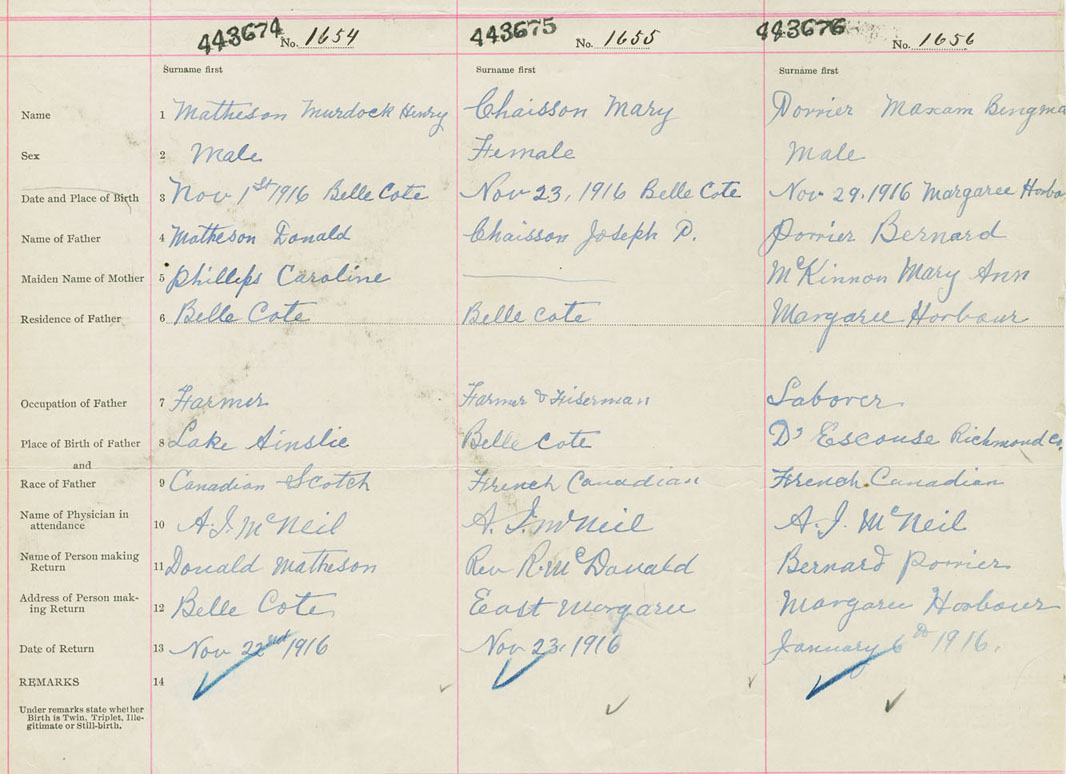 443674 No. 1654 443675 No. 1655 443676 No. 1656
Surname first Surname first Surname first
Name 1 Matheson Murdock Henry Chaisson Mary Porrier Maxam Bingma
Sex 2 Male Female Male
Date and Place of Birth 3 Nov 1st 1916 Belle Cote Nov 23, 1916 Belle Cote Nov. 29, 1916 Margaree Horbo
Name of Father 4 Matheson Donald Chaisson Joseph P. Porrier Bernard
Maiden Name of Mother 5 Phillips Caroline McKinnon Mary Ann
Residence of Father 6 Belle Cote Belle Cote Margaree Horbour
Occupation of Father 7 Farmer Farmer & Fiserman Laborer
Place of Birth of Father 8 Lake Ainslie Belle Cote D' Escouse Richmond Co.
and
Race of Father 9 Canadian Scotch French Canadian French Canadian
Name of Physician in
attendance 10 A. J. McNeil A. J. McNeil A. J. McNeil
Name of Person making
Return 11 Donald Matheson Rev R. McDonald Bernard Porrier
Address of Person mak-
ing Return 12 Belle Cote East Margaree Margaree Horbour
Date of Return 13 Nov 22nd 1916 Nov 23, 1916 January 6th 1916.
REMARKS 14
Under remarks state whether
Birth is Twin, Triplet, Ille-
gitimate or Still-birth.